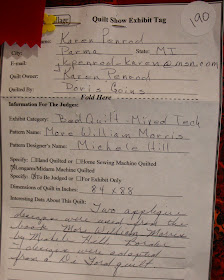 Village Quilt Show Exhibit Tag
190
Karen Penrod
City: Parma State: MI
E-mail: jkpenrod_karen@msn.com
Quilt Owner: Karen Penrod
Quilted By: Doris Goins
Fold Here
Information For The Judges:
Exhibit Category: Bed Quilt - Mixed Tech
Pattern Name: More William Morris
Pattern Designer's Name: Michele Hill
Specify: Hand Quilted or Home Sewing Machine Quilted
Longarm/Midarm Machine Quilted
Specify: To Be Judged or For Exhibit Only
Dimensions of Quilt in Inches: 84 x 88
Interesting Data About This Quilt:
Two applique
designs were used from the
book More William Morris
by Michele Hill. Border
applique was adapted
from a Di Ford quilt.